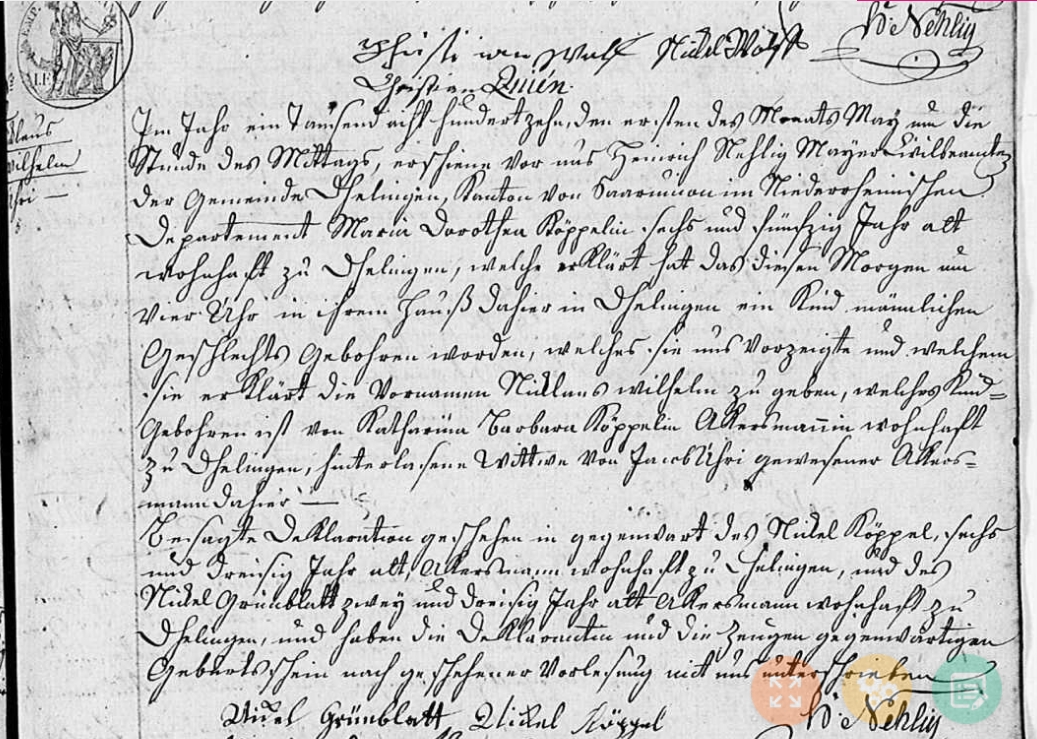 H. Nehlig
Christian Wolf Nickel Wolff
Christian Quirin
Im Jahr ein Tausend acht hundert zehn, den ersten des Monats May um die
Stunde des Mittags, erschiene vor uns Heinrich Nehlig Mayer Civilbeamter
der Gemeinde Dhelingen, Kanton von Saarunion im Niederrheinischen
Departement Maria Dorothea Köppelin sechs und fünfzig Jahr alt
wohnhaft zu Dhelingen, welche erklärt hat das diesen Morgen um
Vier Uhr in ihrem Hauß dahier in Dhelingen ein Kind männlichen
Geschlechts Gebohren worden, welches sie uns Vorzeigte und welchem
sie erklärt die Vornamen Nicklaus wilhelm zu geben, welches Kind
Gebohren ist von Katharina Barbara Köppelin Akersmännin wohnhaft
zu Dhelingen, hinterlasene Wittwe von Jacob Uhri gewesener Akers=
mann dahier
Besagte Deklaration geschehen in gegenwart des Nickel Köppel, sechs
und dreisig Jahr alt, Akersmann wohnhaft zu Dhelingen, und des
Nickel Grünblatt zwey und dreisig Jahr alt Akersmann wohnhaft zu
Dhelingen, und haben die Deklarantin und die Zeugen gegenwärtigen
Geburtsschein nach geschehener Vorlesung mit uns unterschrieben
Nickel Grünblatt Nickel Köppel H. Nehlig
klaus
wilhelm
Uhri